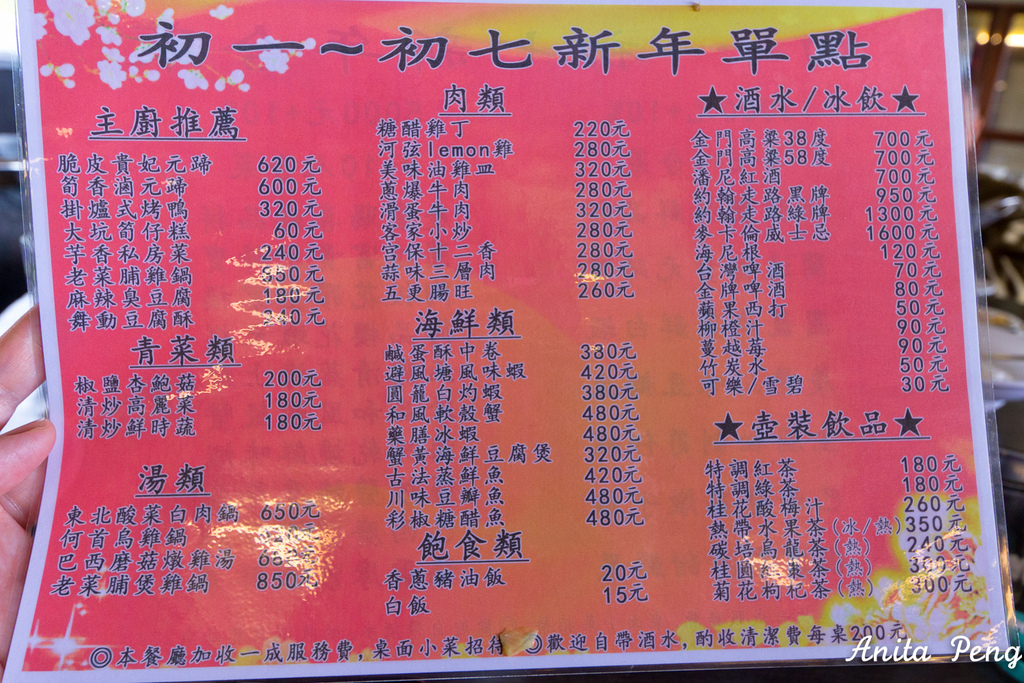 初一~初七新年單點
主廚推薦
脆皮貴妃元蹄 620元
筍香滷元蹄 600元
掛爐式烤鴨 320元
大坑筍仔糕 60元
芋香私房菜 240元
老菜脯雞鍋 350元
麻辣臭豆腐 180元
舞動豆腐酥 240元
青菜類
椒鹽杏鮑菇 200元
清炒高麗菜 180元
清炒鮮時蔬 180元
湯類
東北酸菜白肉鍋 650元
何首烏雞鍋
巴西磨菇燉雞湯 元
老菜脯煲雞鍋 850元
肉類
糖醋雞丁 220元
河弦lemon雞 280元
美味油雞皿 320元
蔥爆牛肉 280元
滑蛋牛肉 320元
客家小炒 280元
宮保十二香 280元
蒜味三層肉 280元
五更腸旺 260元
海鮮類
鹹蛋酥中卷 380元
避風塘風味蝦 420元
圓龍白灼蝦 380元
和風軟殼蟹 480元
藥膳冰蝦 480元
蟹黃海鮮豆腐煲 320元
古法蒸鮮魚 420元
川味豆瓣魚 480元
彩椒糖醋魚 480元
飽食類
香蔥豬油飯 20元
白飯 15元
★酒水/冰飲★
金門高粱38度 700元
金門高粱58度 700元
潘尼紅酒 700元
約翰走路黑牌 950元
約翰走路綠牌 1300元
麥卡倫威士忌 1600元
海尼根 120元
台灣啤酒 70元
金牌啤酒 80元
蘋果西打 50元
柳橙汁 90元
蔓越莓 90元
竹炭水 50元
可樂/雪碧 30元
★壺裝飲品★
特調紅茶 180元
特調綠茶 180元
桂花酸梅汁 260元
熱帶水果茶(冰/熱) 350元
碳培烏龍茶(熱) 240元
桂圓紅棗茶(熱) 350元
菊花枸杞茶(熱) 300元
◎本餐廳加收一成服務費,桌面小菜招待 ◎歡迎自帶酒水,酌收清潔費每桌200元
Anita Peng